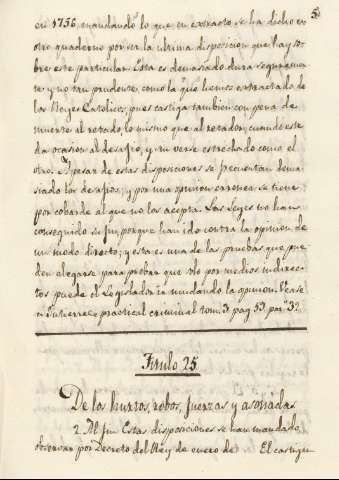 5
en 1756, mandando lo que en extracto se ha dicho en
otro quaderno por ser la ultima disposicion que hay so-
bre este particular. Esta es demasiado dura seguramen-
te y no tan prudente, como la que hemos extractado de
los Reyes Catolicos, pues castiga tambien con pena de
muerte al retado, lo mismo que al retador, cuando este
da ocasion al desafio, y a verse estrechado como el
otro. Apesar de estas disposiciones se frecuentan dema-
siado los desafios, y por una opinion erronea se tiene
por cobarde al que no los acepta. Las Leyes no han
conseguido su fin, porque han ido contra la opinion de
un modo directo; y esta es una de las pruebas que pue-
den alegarse para probar que solo por medios indirec-
tos puede el Legislador ir mudando la opinion. Vease
a Gutierrez practica criminal tom. 3 pag 53 par. 32
Titulo 25
De los hurtos, robos, fuerzas y asonadas
2. Al fin Estas disposiciones se han mandado
observar por Decreto del Rey de enero de El castigu